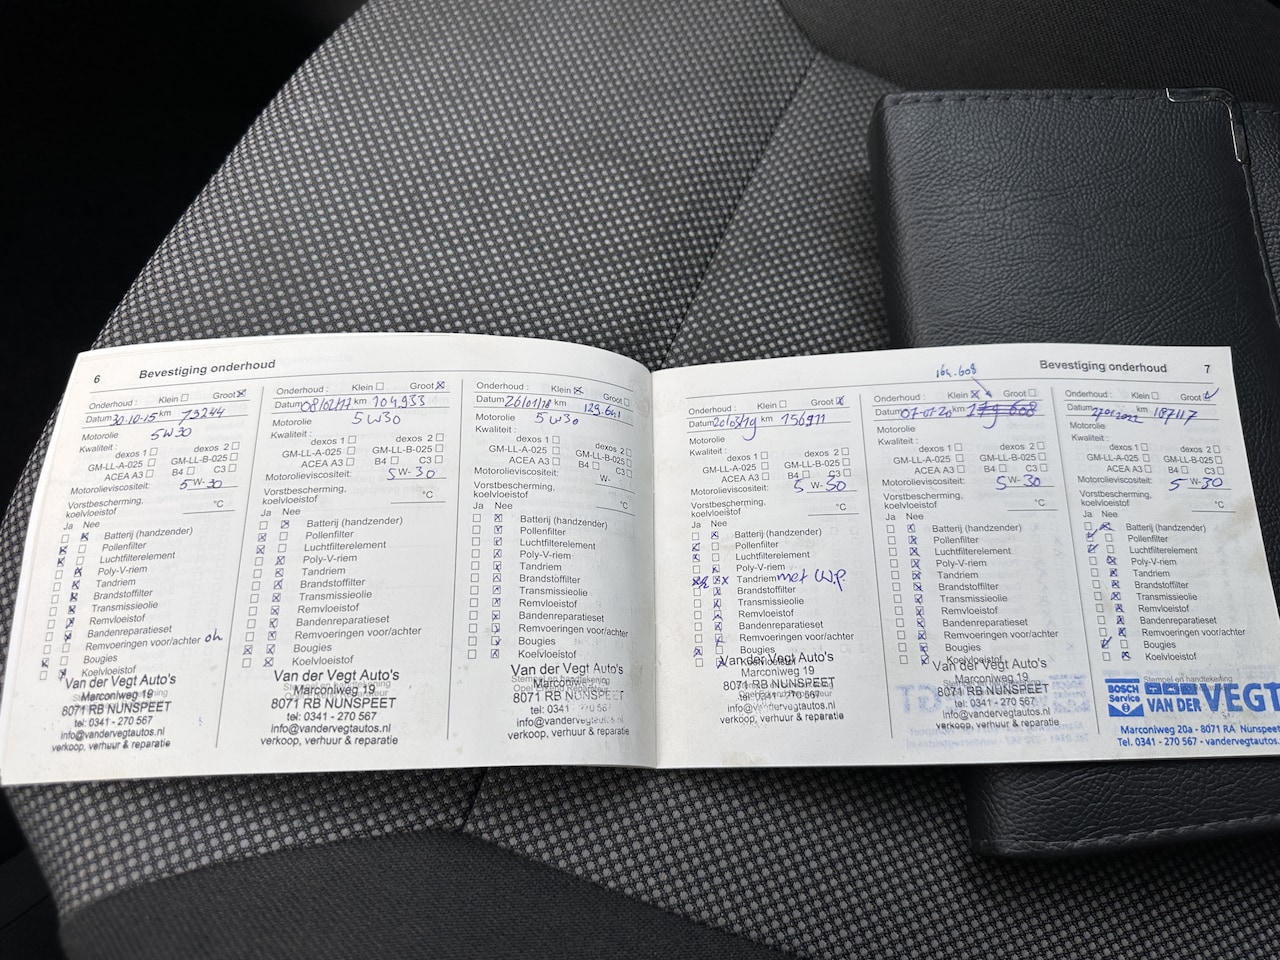 6 Bevestiging onderhoud
Onderhoud : Klein Groot
Datum 30-10-15 km 73244
Motorolie 5W30
Kwaliteit :
dexos 1 dexos 2
GM-LL-A-025 GM-LL-B-025
ACEA A3 B4 C3
Motorolieviscositeit: 5 W- 30
Vorstbescherming,
koelvloeistof °C
Ja Nee
Batterij (handzender)
Pollenfilter
Luchtfilterelement
Poly-V-riem
Tandriem
Brandstoffilter
Transmissieolie
Remvloeistof
Bandenreparatieset
Remvoeringen voor/achter oh
Bougies
Koelvloeistof
Van der Vegt Auto's
Marconiweg 19
8071 RB NUNSPEET
tel: 0341 - 270 567
info@vandervegtautos.nl
verkoop, verhuur & reparatie
Onderhoud : Klein Groot
Datum 08/02/17 km 104933
Motorolie 5W30
Kwaliteit :
dexos 1 dexos 2
GM-LL-A-025 GM-LL-B-025
ACEA A3 B4 C3
Motorolieviscositeit: 5 W- 30
Vorstbescherming,
koelvloeistof °C
Ja Nee
Batterij (handzender)
Pollenfilter
Luchtfilterelement
Poly-V-riem
Tandriem
Brandstoffilter
Transmissieolie
Remvloeistof
Bandenreparatieset
Remvoeringen voor/achter
Bougies
Koelvloeistof
Van der Vegt Auto's
Marconiweg 19
8071 RB NUNSPEET
tel: 0341 - 270 567
info@vandervegtautos.nl
verkoop, verhuur & reparatie
Onderhoud : Klein Groot
Datum 26/01/18 km 129.641
Motorolie 5W30
Kwaliteit :
dexos 1 dexos 2
GM-LL-A-025 GM-LL-B-025
ACEA A3 B4 C3
Motorolieviscositeit: W-
Vorstbescherming,
koelvloeistof °C
Ja Nee
Batterij (handzender)
Pollenfilter
Luchtfilterelement
Poly-V-riem
Tandriem
Brandstoffilter
Transmissieolie
Remvloeistof
Bandenreparatieset
Remvoeringen voor/achter
Bougies
Koelvloeistof
Van der Vegt Auto's
Stempel en handtekening
8071 RB NUNSPEET
tel: 0341 - 270 567
info@vandervegtautos.nl
verkoop, verhuur & reparatie
Bevestiging onderhoud 7
Onderhoud : Klein Groot
Datum 20/05/19 km 156911
Motorolie
Kwaliteit :
dexos 1 dexos 2
GM-LL-A-025 GM-LL-B-025
ACEA A3 B4 C3
Motorolieviscositeit: 5 W- 30
Vorstbescherming,
koelvloeistof °C
Ja Nee
Batterij (handzender)
Pollenfilter
Luchtfilterelement
Poly-V-riem
Tandriem met W.P.
Brandstoffilter
Transmissieolie
Remvloeistof
Bandenreparatieset
Remvoeringen voor/achter
Bougies
Koelvloeistof
Van der Vegt Auto's
Marconiweg 19
8071 RB NUNSPEET
tel: 0341 - 270 567
info@vandervegtautos.nl
verkoop, verhuur & reparatie
164.608
Onderhoud : Klein Groot
Datum 07-07-20 km
Motorolie
Kwaliteit :
dexos 1 dexos 2
GM-LL-A-025 GM-LL-B-025
ACEA A3 B4 C3
Motorolieviscositeit: 5 W- 30
Vorstbescherming,
koelvloeistof °C
Ja Nee
Batterij (handzender)
Pollenfilter
Luchtfilterelement
Poly-V-riem
Tandriem
Brandstoffilter
Transmissieolie
Remvloeistof
Bandenreparatieset
Remvoeringen voor/achter
Bougies
Koelvloeistof
Van der Vegt Auto's
Marconiweg 19
8071 RB NUNSPEET
tel: 0341 - 270 567
info@vandervegtautos.nl
verkoop, verhuur & reparatie
Onderhoud : Klein Groot
Datum km 187117
Motorolie
Kwaliteit :
dexos 1 dexos 2
GM-LL-A-025 GM-LL-B-025
ACEA A3 B4 C3
Motorolieviscositeit: 5 W- 30
Vorstbescherming,
koelvloeistof °C
Ja Nee
Batterij (handzender)
Pollenfilter
Luchtfilterelement
Poly-V-riem
Tandriem
Brandstoffilter
Transmissieolie
Remvloeistof
Bandenreparatieset
Remvoeringen voor/achter
Bougies
Koelvloeistof
Stempel en handtekening
BOSCH
Service
VAN DER VEGT
Marconiweg 20a - 8071 RA Nunspeet
Tel. 0341 - 270 567 - vandervegtautos.